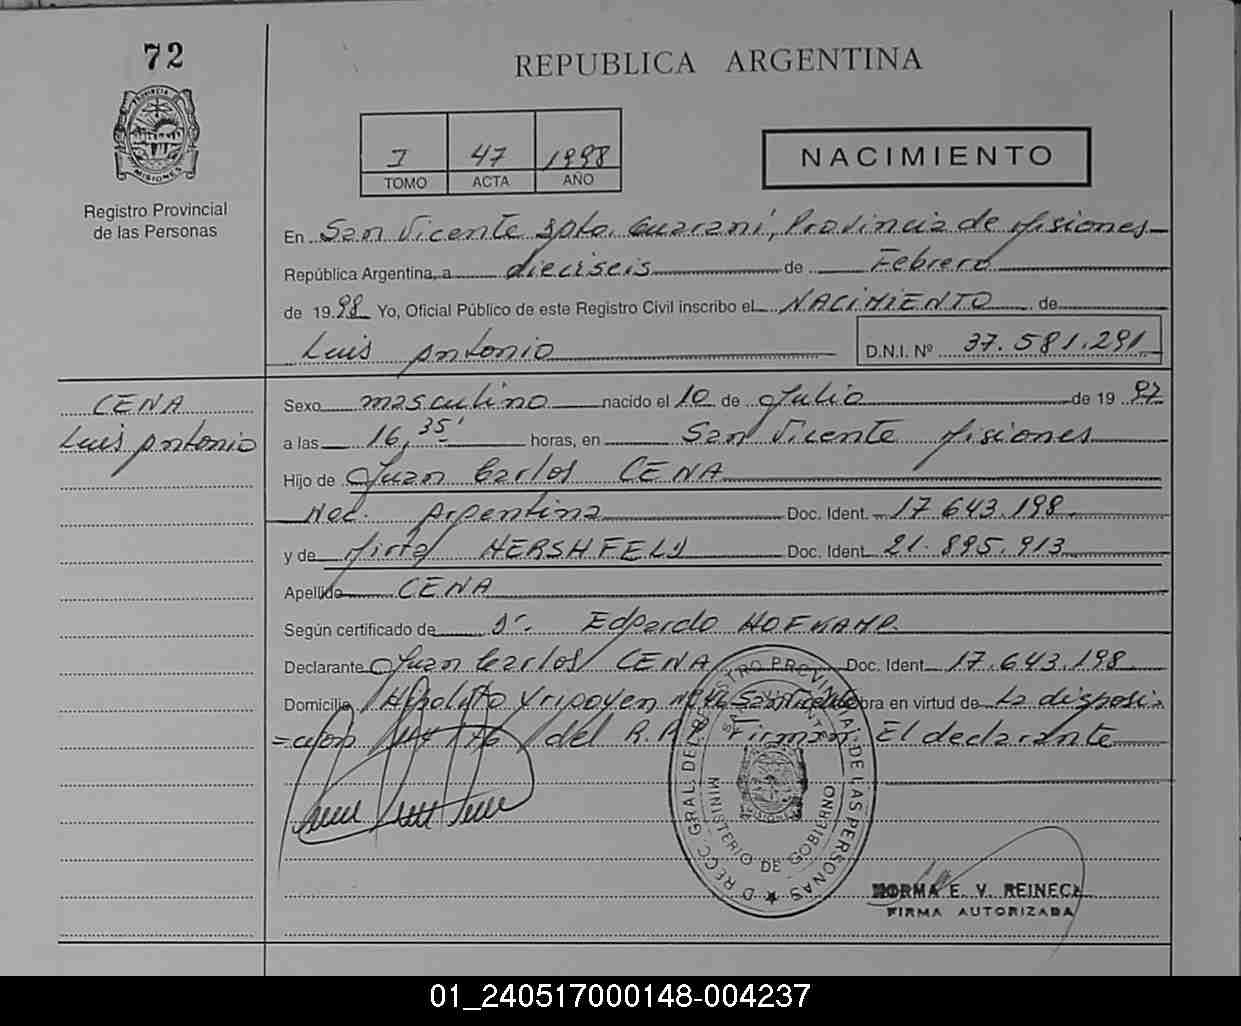 72
REPUBLICA ARGENTINA
PROVINCIA
MISIONES
Registro Provincial
de las Personas
I 47 1998
TOMO ACTA AÑO
NACIMIENTO
En San Vicente Dpto. Guaraní, Provincia de Misiones
República Argentina, a dieciseis de Febrero
de 1998 Yo, Oficial Público de este Registro Civil inscribo el NACIMIENTO de
Luis Antonio D.N.I. Nº 37.581.291
CENA
Luis Antonio
Sexo masculino nacido el 10 de Julio de 1997
a las 16,35' horas, en San Vicente Misiones
Hijo de Juan Carlos CENA
Nac. Argentina Doc. Ident. 17.643.198
y de Mirta HERSHFELD Doc. Ident. 21.895.913
Apellido CENA
Según certificado de Dr. Edgardo HOFKAMP
Declarante Juan Carlos CENA Doc. Ident. 17.643.198
Domicilio Hipolito Yrigoyen obra en virtud de La disposi
=cion del Firman: El declarante
DIRECC. GRAL. DEL REGISTRO PROVINCIAL DE LAS PERSONAS
SAN VICENTE
MINISTERIO DE GOBIERNO
MISIONES
NORMA E. V. REINECK
FIRMA AUTORIZADA
01_240517000148-004237